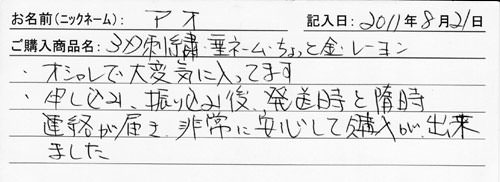 お名前(ニックネーム): アオ 記入日: 2011年8月21日
ご購入商品名: 3D刺繍・垂ネーム・ちょっと金・レーヨン
・オシャレで大変気に入ってます
・申し込み、振り込み後、発送時と随時
連絡が届き、非常に安心して購入が出来
ました